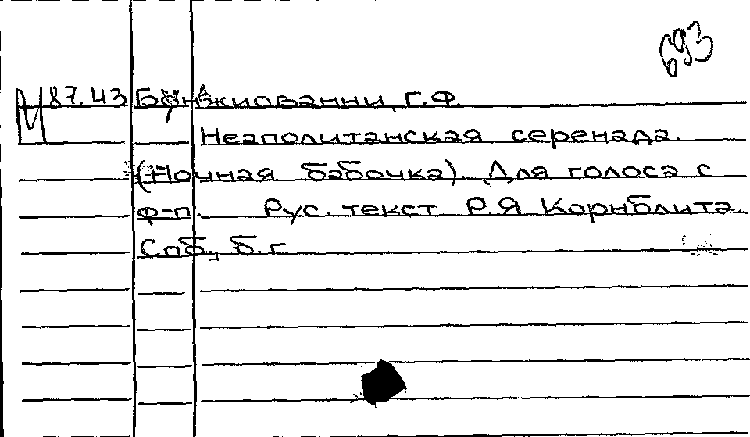 693
М 87.43 Бонжиованни, Г.Ф.
Неаполитанская серенада.
(Ночная бабочка). Для голоса с
ф-п. Рус. текст Р.Я Корнблита.
Спб., б.г.